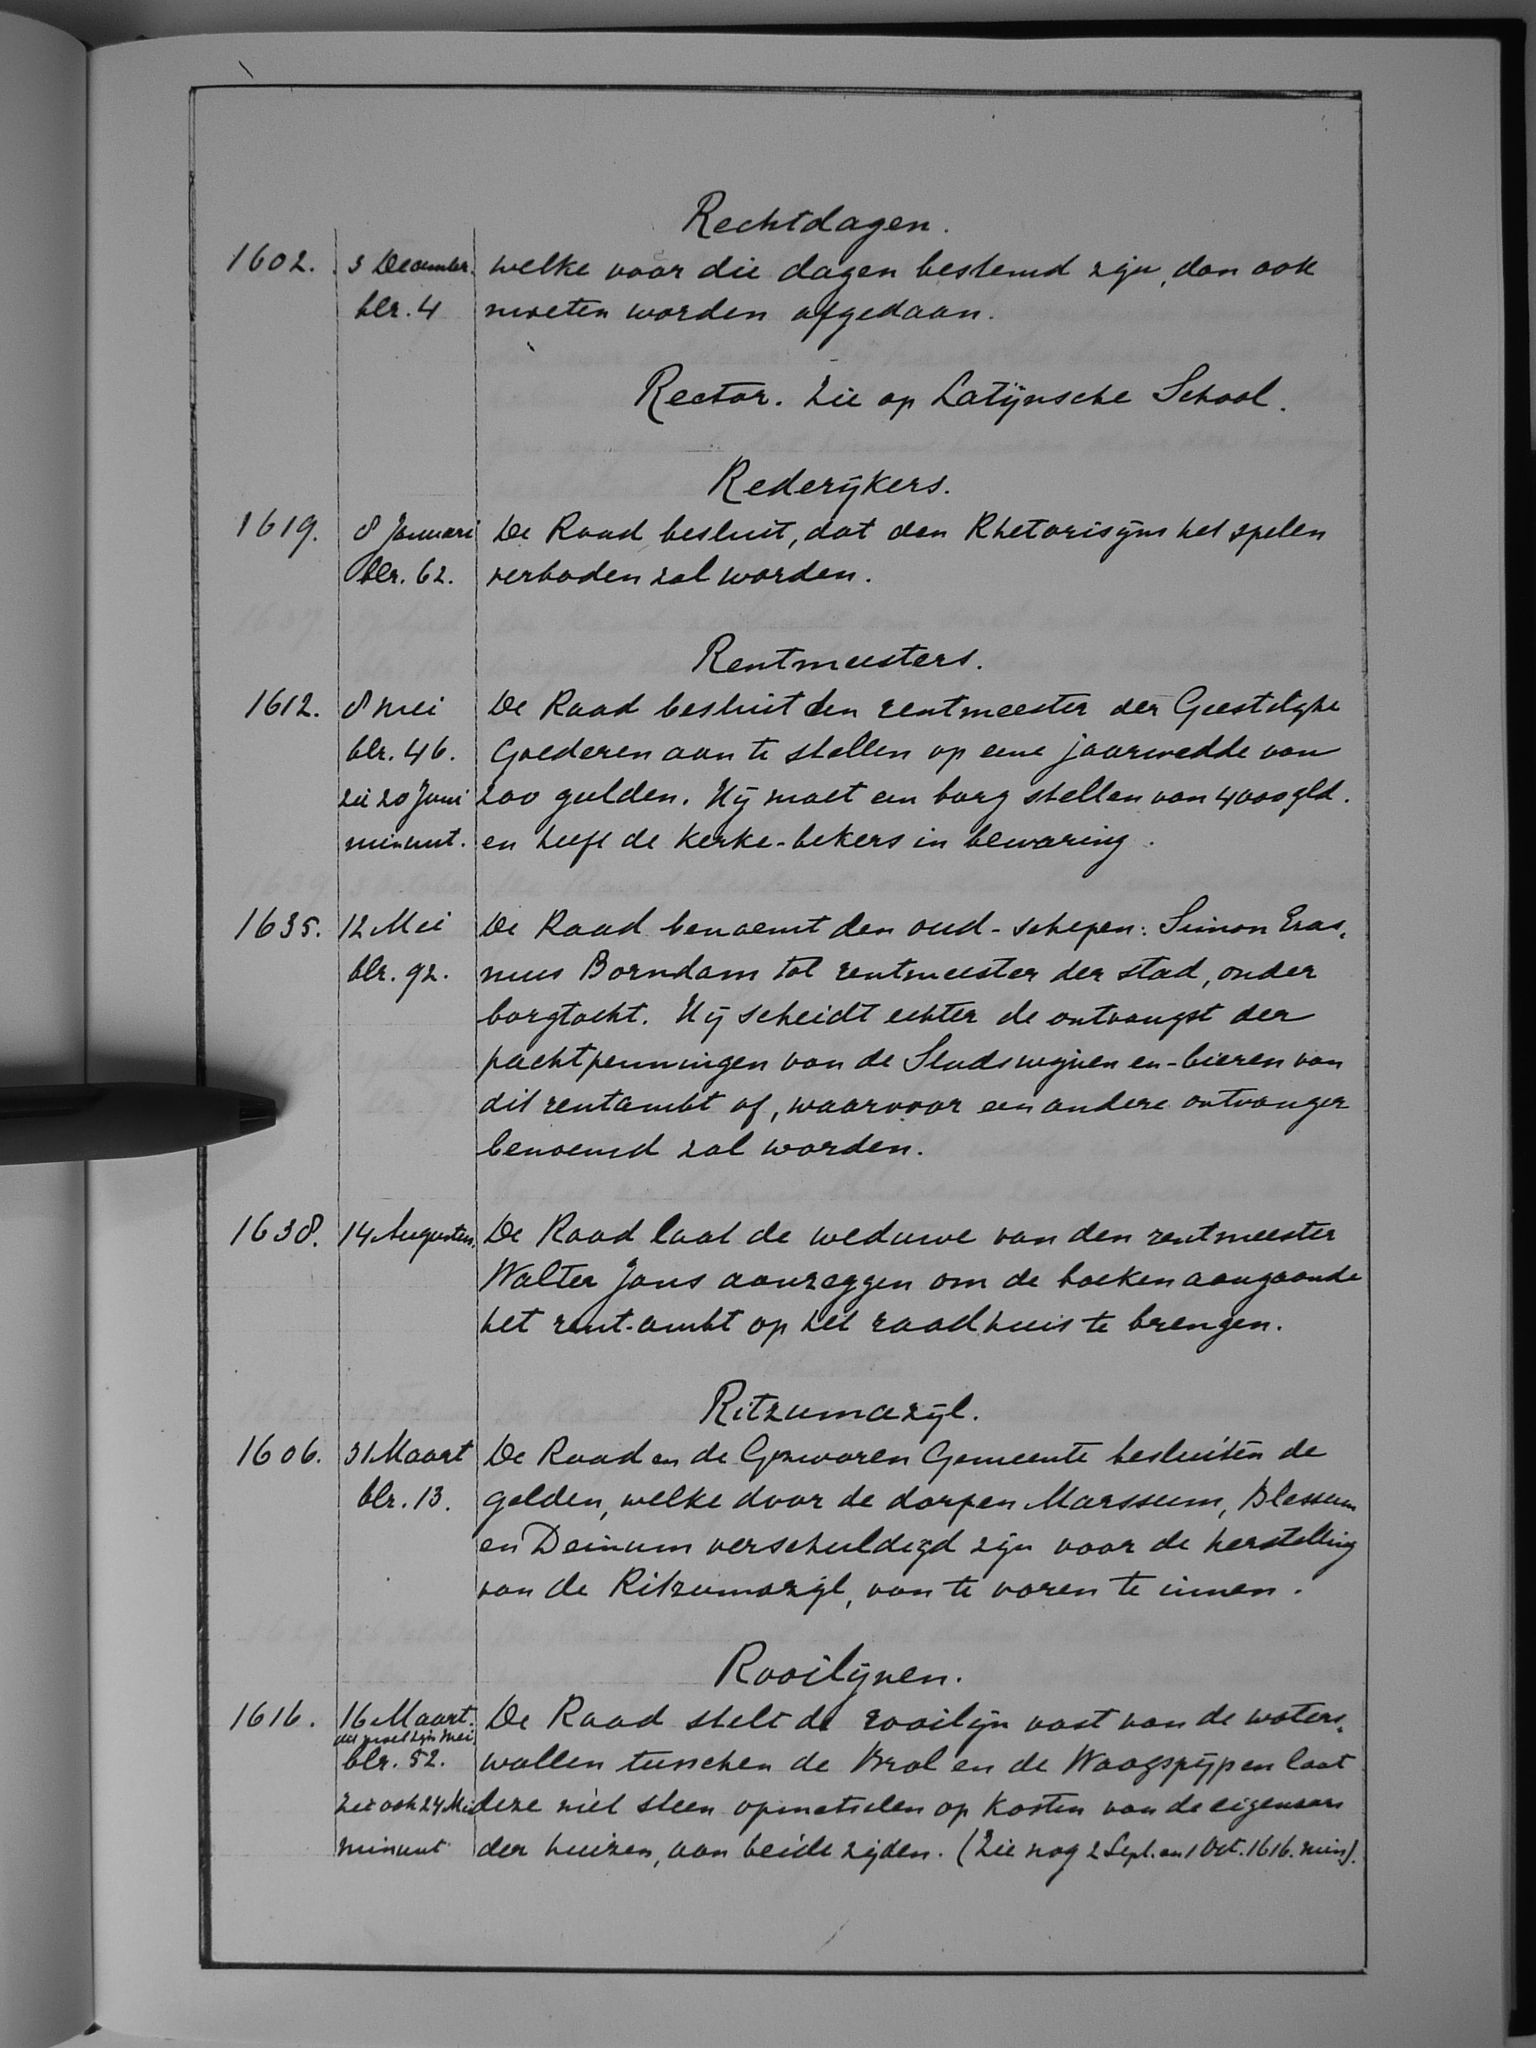 Rechtdagen.
1602. 3 December. welke voor die dagen bestemd zijn, dan ook
blz. 4 moeten worden afgedaan.
Rector. Zie op Latijnsche School.
Rederijkers.
1619. 8 Januari De Raad besluit, dat den Rhetorisijns het spelen
blz. 62. verboden zal worden.
Rentmeesters.
1612. 8 Mei De Raad besluit den rentmeester der Geestelijke
blz. 46. Goederen aan te stellen op eene jaarwedde van
zie 20 Juni 200 gulden. Hij moet een borg stellen van 4000 gld.
minuut. en heeft de kerke-bekers in bewaring.
1635. 12 Mei De Raad benoemt den oud-schepen: Simon Eras-
blz. 92. mus Borndam tot rentmeester der stad, onder
borgtocht. Hij scheidt echter de ontvangst der
pachtpenningen van de Stadswijnen en-bieren van
dit rentambt af, waarvoor een andere ontvanger
benoemd zal worden.
1638. 14 Augustus. De Raad laat de weduwe van den rentmeester
Walter Jans aanzeggen om de boeken aangaande
het rent-ambt op het raadhuis te brengen.
Ritzumazijl.
1606. 31 Maart De Raad en de Gezworen Gemeente besluiten de
blz. 13. gelden, welke door de dorpen Marssum, Blessum
en Deinum verschuldigd zijn voor de herstelling
van de Ritzumazijl, van te voren te innen.
Rooilijnen.
1616. 16 Maart. De Raad stelt de rooilijn vast van de waters-
dit moet zijn Mei
blz. 52. wallen tusschen de Brol en de Waagspijp en laat
Zie ook 24 Mei deze met steen opmetselen op kosten van de eigenaars
minuut der huizen, aan beide zijden. (Zie nog 2 Sept. en 1 Oct. 1616. min).